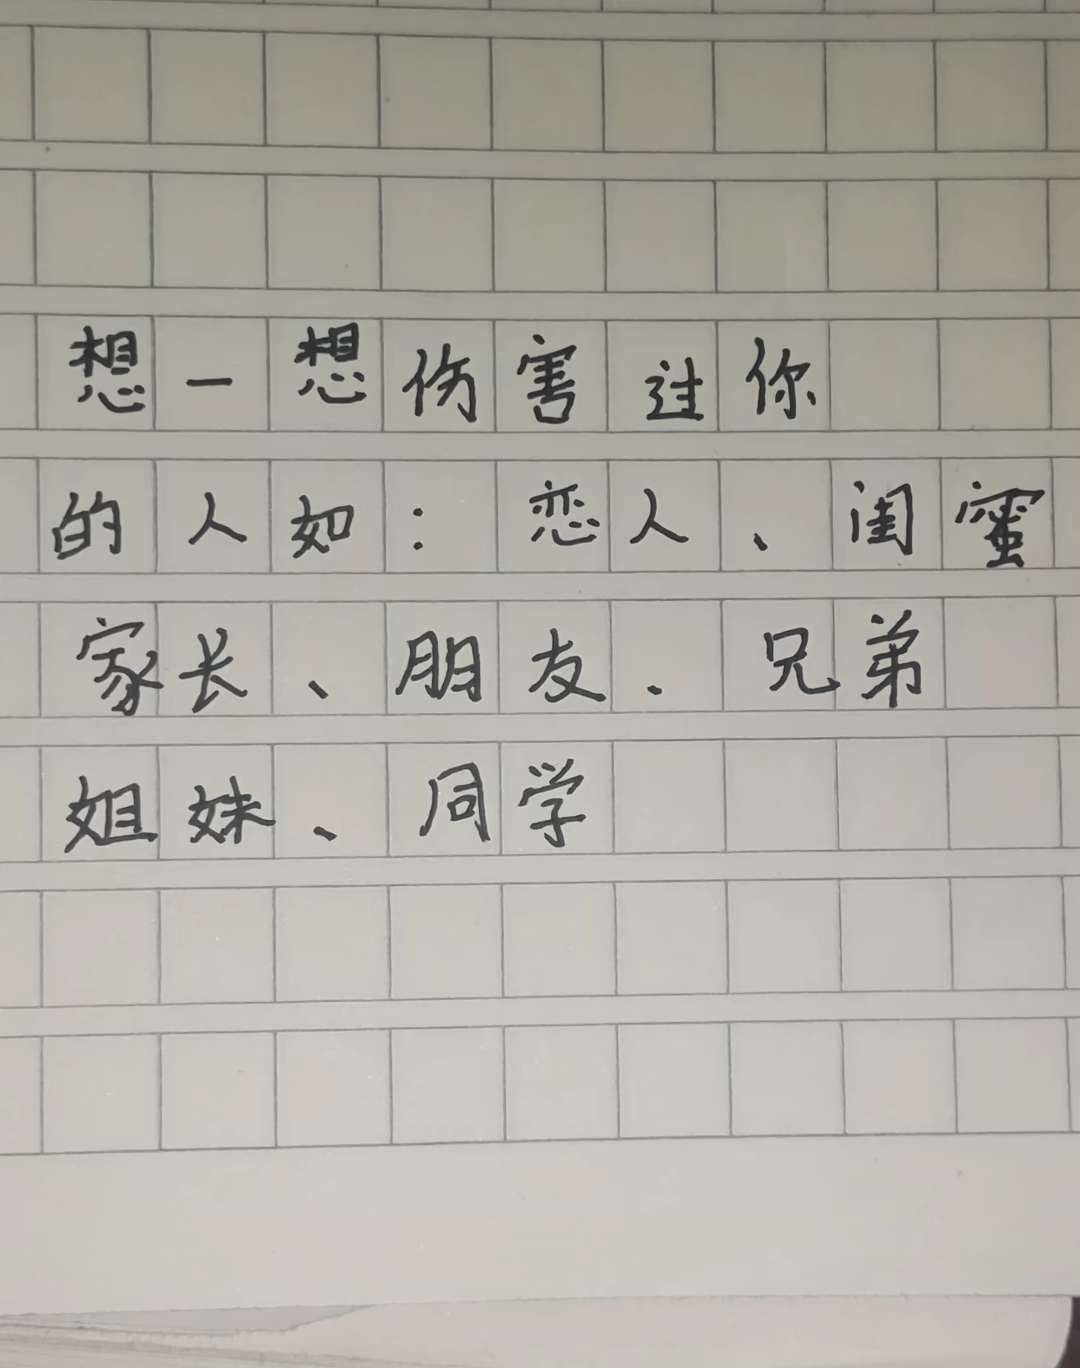 想一想伤害过你
的人如：恋人、闺蜜
家长、朋友、兄弟
姐妹、同学